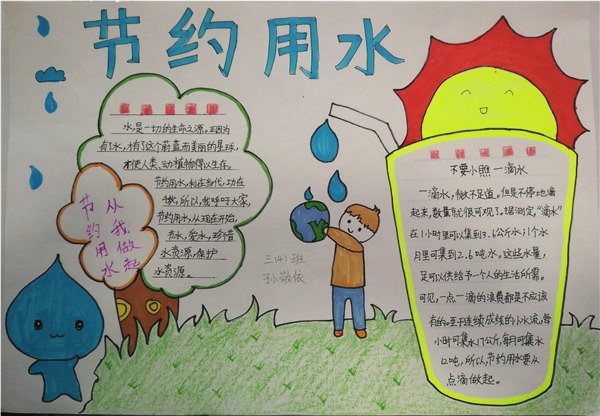 节约用水
水是一切的生命之源。正因为
有了水,才有了这个蔚蓝而美丽的星球,
才使人类、动植物得以生存。
节约用水,利在当代,功在
千秋,所以,我呼吁大家,
节约用水,从现在开始,
水,爱水,珍惜
水资源,保护
水资源。
从我做起
节约用水
三(4)班
孙
不要小瞧一滴水
一滴水,微不足道。但是不停地滴
起来,数量就很可观了。据测定,“滴水”
在1小时里可以集到3.6公斤水;1个水
月里可集到2.6吨水。这些水量,
足可以供给予个人的生活所需。
可见,一点一滴的浪费都是不应该
有的。至于连续成线的小水流,每
小时可集水17公斤,每月可集水
12吨,所以,节约用水要从
点滴做起。